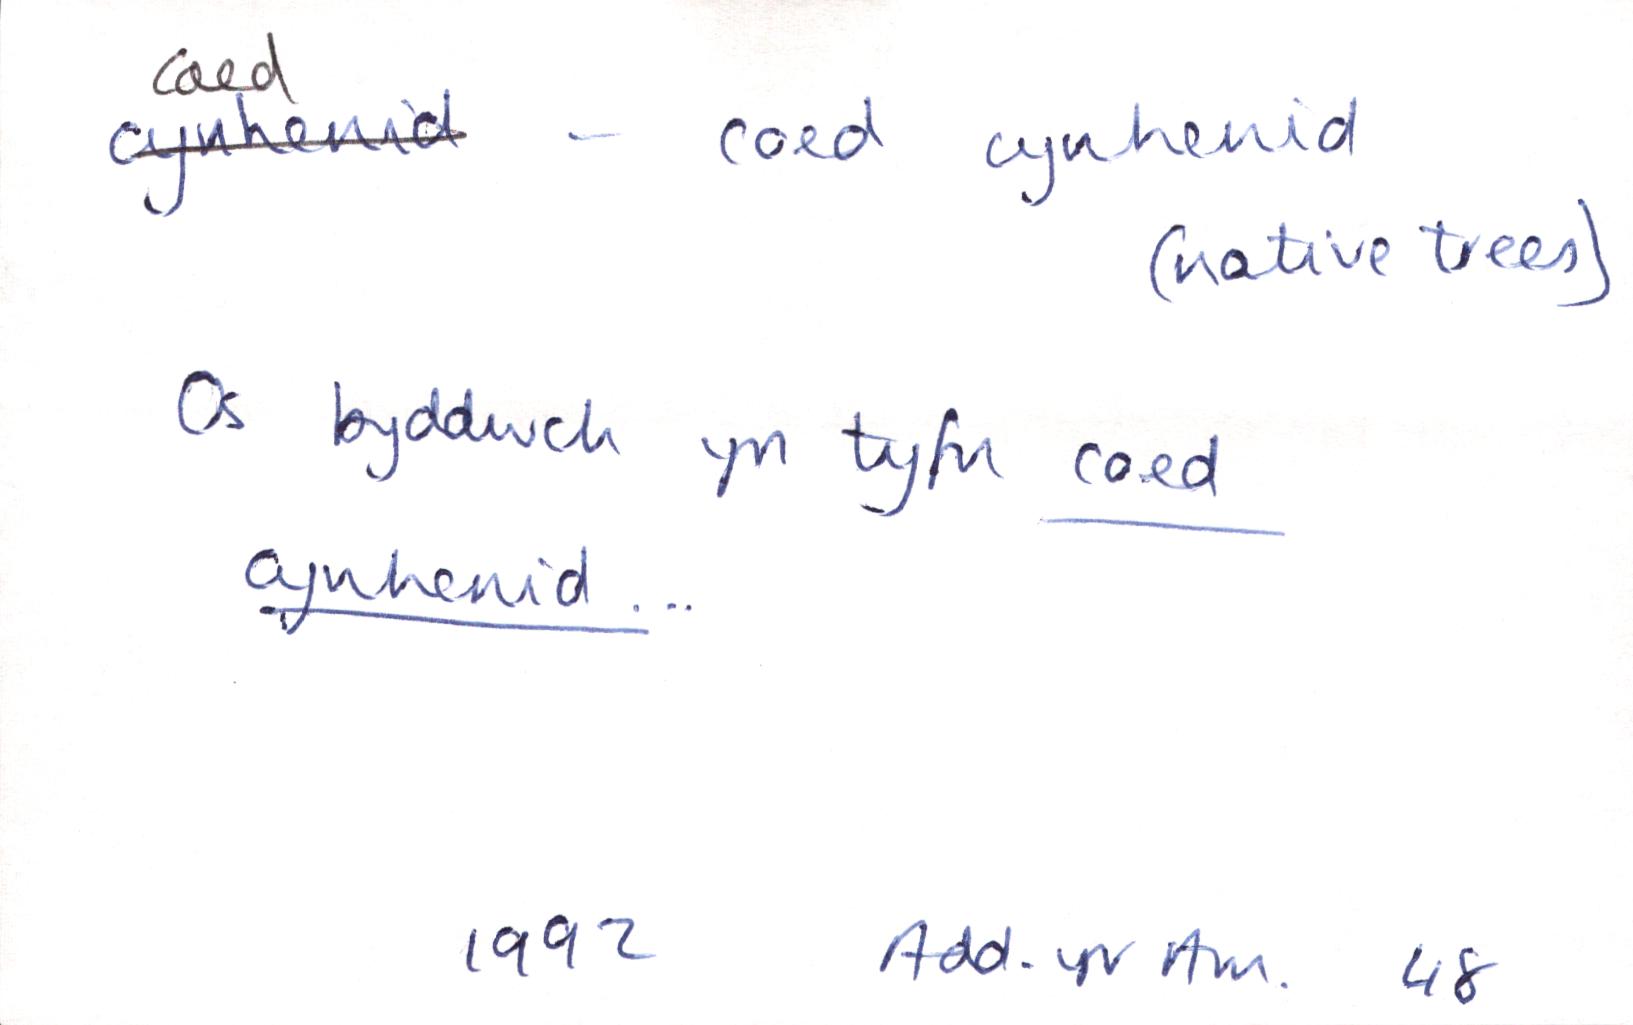 coed
cynhenid - coed cynhenid
(native trees)
Os byddwch yn tyfu coed
cynhenid...
1992 Add. yr Am. 48